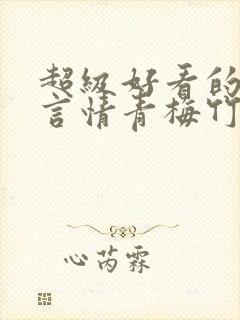 超级好看的
言情青梅竹
心芮霖